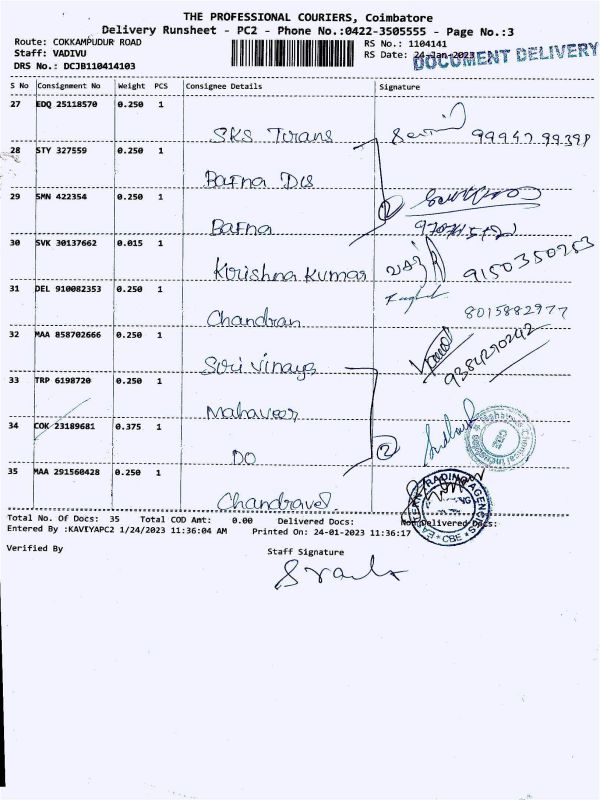 THE PROFESSIONAL COURIERS, Coimbatore
Delivery Runsheet - PC2 - Phone No.:0422-3505555 - Page No.:3
Route: COKKAMPUDUR ROAD RS No.: 1104141
Staff: VADIVU RS Date: 24-Jan-2023
DOCUMENT DELIVERY
DRS No.: DCJB110414103
S No Consignment No Weight PCS Consignee Details Signature
27 EDQ 25118570 0.250 1
SKS Trans 99947 99398
28 STY 327559 0.250 1
Bafna DIS
29 SMN 422354 0.250 1
Bafna 2
30 SVK 30137662 0.015 1
Krishna Kumar 9150350253
31 DEL 910082353 0.250 1
Chandran 8015882977
32 MAA 858702666 0.250 1
Sri Vinaya 9384290242
33 TRP 6198720 0.250 1
Mahaveer
34 COK 23189681 0.375 1
DO 2
35 MAA 291560428 0.250 1
Chandravel
EASTERN TRADING AGENCIES
CBE
Total No. Of Docs: 35 Total COD Amt: 0.00 Delivered Docs: Non Delivered Docs:
Entered By :KAVIYAPC2 1/24/2023 11:36:04 AM Printed On: 24-01-2023 11:36:17
Verified By Staff Signature